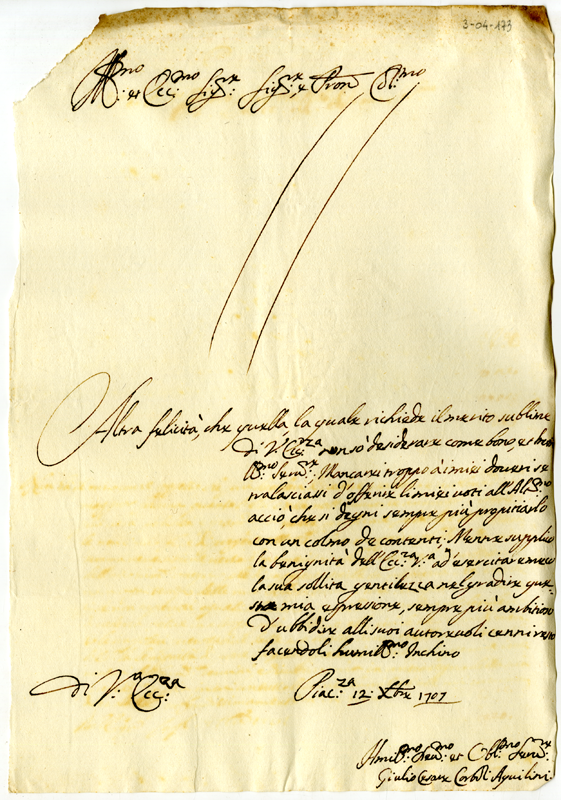 3-04-173
Ill:mo et Ecc:mo Sig:re Sig:re, e Pron Col:mo
Altra felicità, che quella, la quale richiede il merito sublime
di V: Ecc:za non sò desiderare come bono, et
Ser:re, Mancarei troppo à miei doveri se
tralasciassi d'offerire li miei voti all'Alt:mo
acciò, che si degni sempre più propitiarlo
con un colmo de contenti: Mentre supplico
la benignità dell'Ecc:za V:a ad'esercitare meco
la sua sollita gentilezza nel gradire que-
sta mia espressione, sempre più ambitioso
d'ubbidire alli suoi autorevoli cenni resto
facendoli humill:mo Inchino
Di V:a Ecc:za
Piac:za 12: Xbre 1707
Humil:mo Dev:mo et Obl:mo Serv:re
Giulio Cesare Aquilini